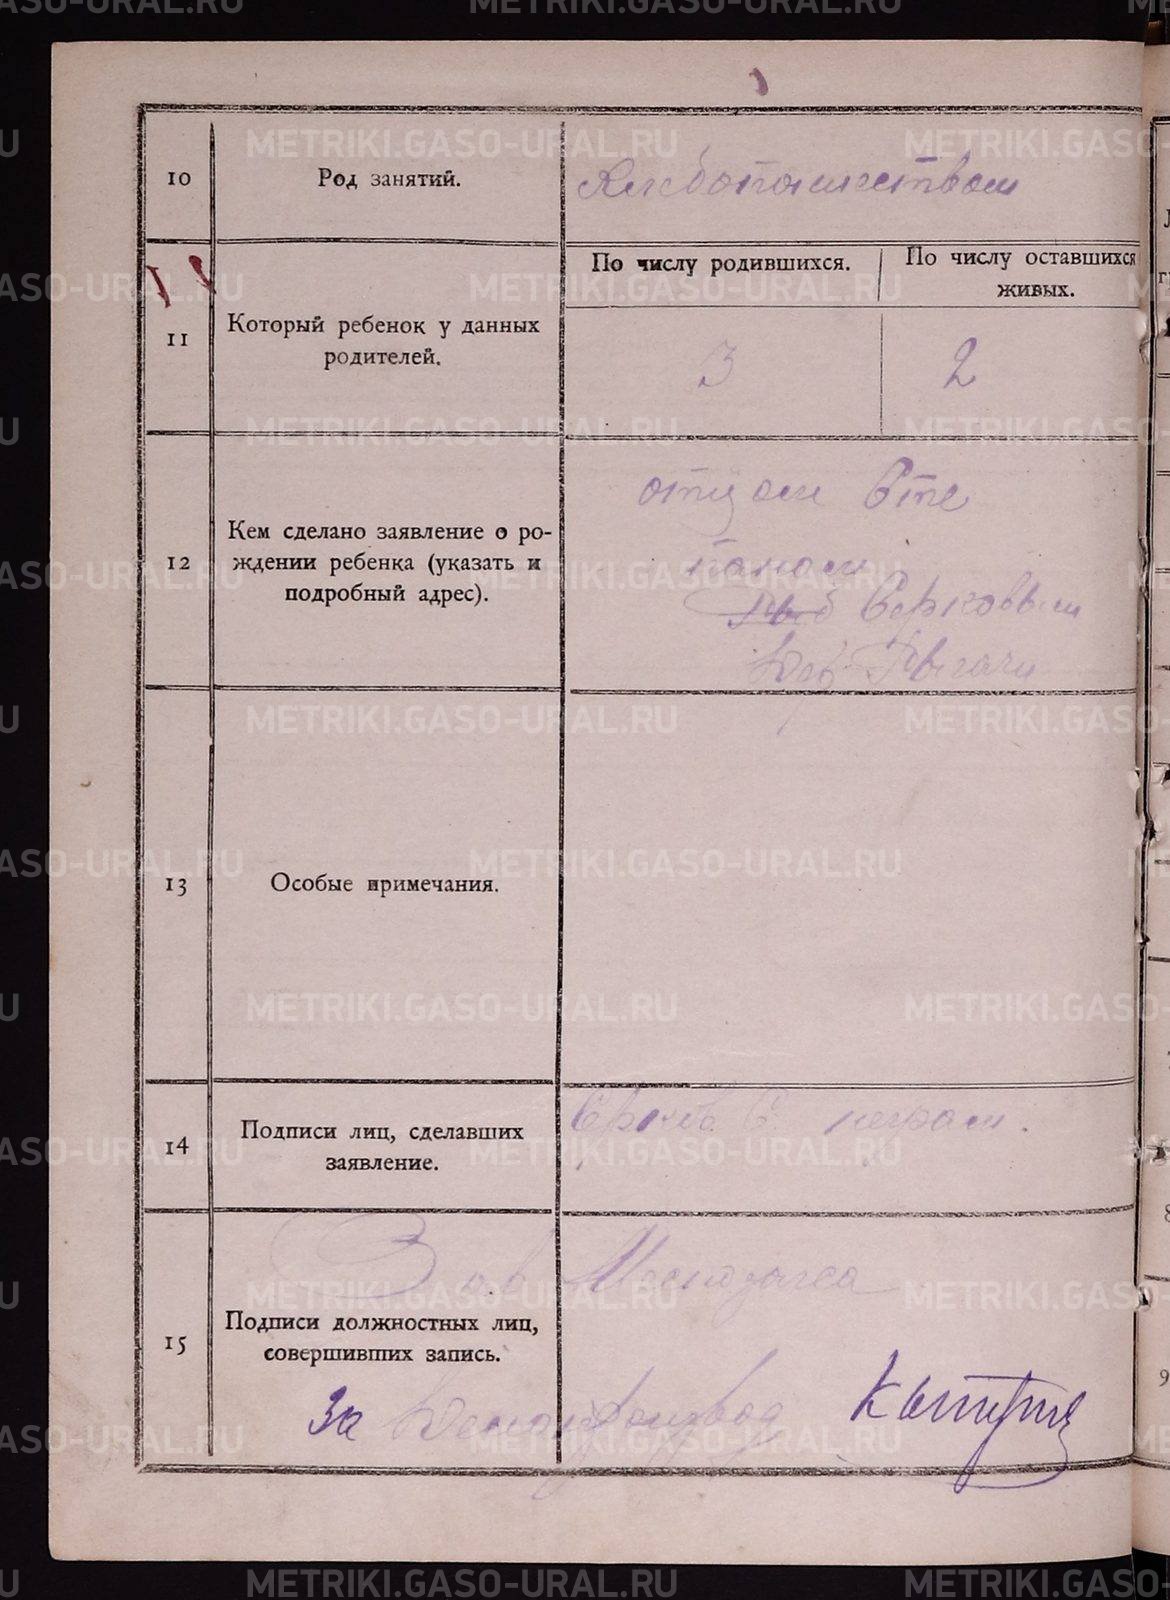 10
Род занятий.
Хлебопашеством
11
Который ребенок у данных
родителей.
По числу родившихся.
По числу оставшихся
живых.
3
2
12
Кем сделано заявление о ро-
ждении ребенка (указать и
подробный адрес).
отцом Сте
паном
Ерковым
дер.
13
Особые примечания.
14
Подписи лиц, сделавших
заявление.
Ерков С. неграм.
15
Подписи должностных лиц,
совершивших запись.
Зав
За Делопроизвод
METRIKI.GASO-URAL.RU